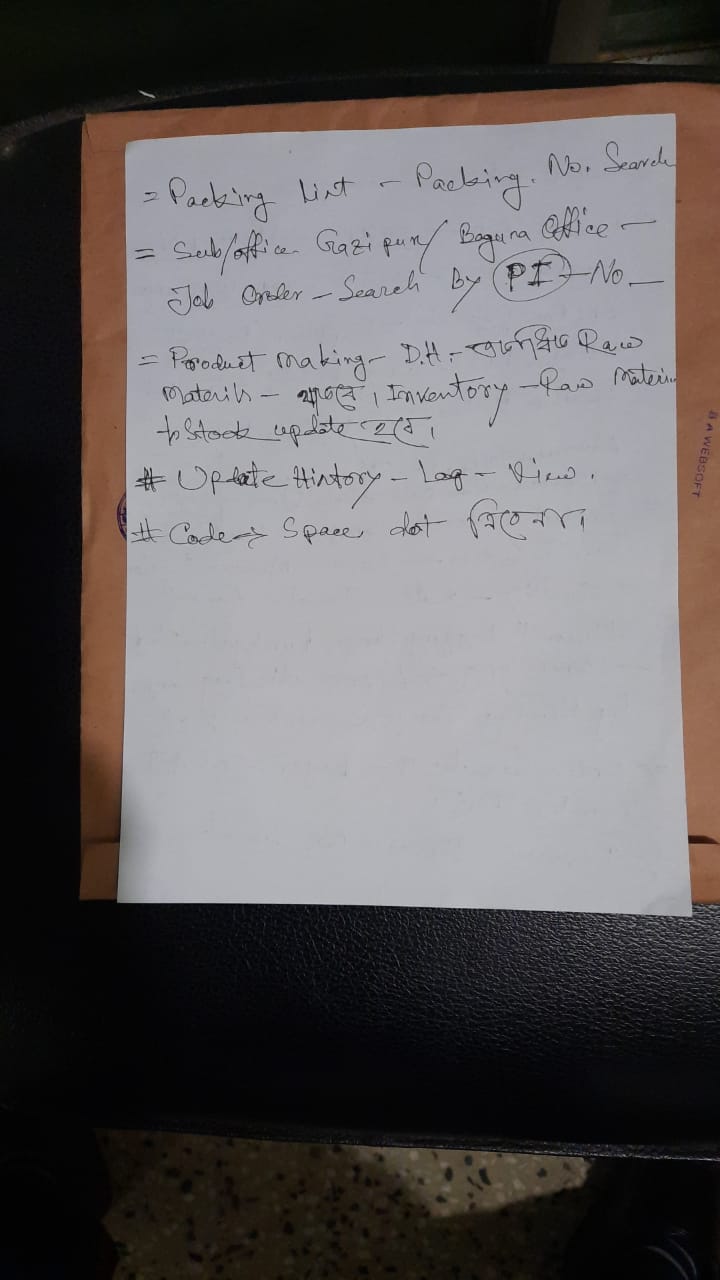 = Packing List - Packing. No. Search
= Sub/office Gazipur/ Bogura Office -
Job Order - Search By (PI) - No -
= Product making - D.H. - Raw
Materils - থাকবে। Inventory - Raw Materi
Stock update হবে।
# Update History - Log - View.
# Code → Space dot নিবেনা।
A WEBSOFT